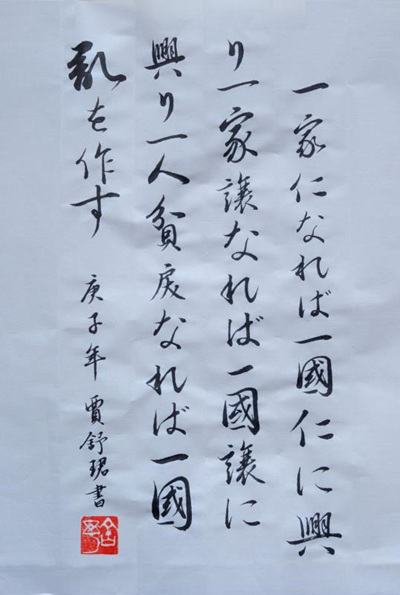 一家仁なれば一國仁に興
り一家譲なれば一國譲に
興り一人貧戻なれば一國
亂を作す 庚子年 賈舒珺書